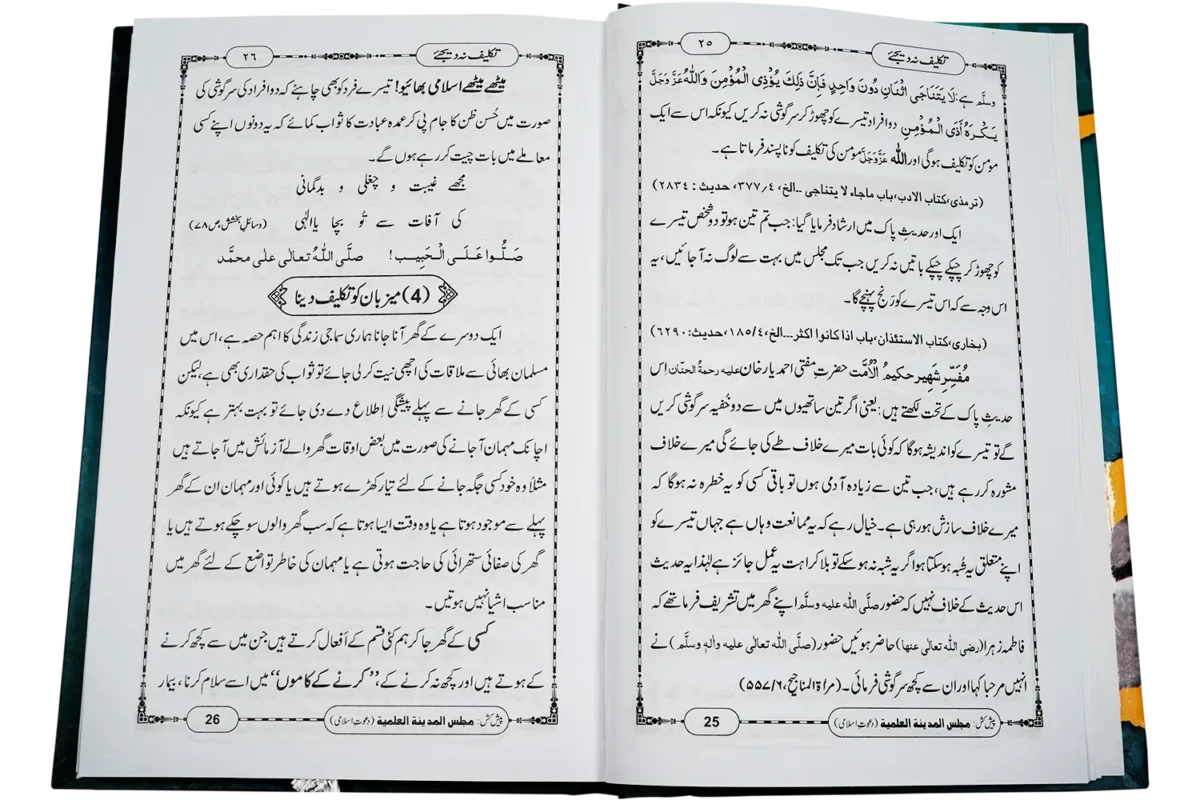 تکلیف نہ دیجئے
٢٥
وسلَّم ہے:لَا يَتَنَاجَى اثْنَانِ دُونَ وَاحِدٍ فَإِنَّ ذٰلِكَ يُؤْذِى الْمُؤْمِنَ وَاللّٰهُ عَزَّ وَجَلَّ
يَكْرَهُ أَذَى الْمُؤْمِنِ دو افراد تیسرے کو چھوڑ کر سرگوشی نہ کریں کیونکہ اس سے ایک
مؤمن کو تکلیف ہوگی اور اللّٰہ عَزَّوَجَلَّ مؤمن کی تکلیف کو ناپسند فرماتا ہے۔
(ترمذی،کتاب الادب،باب ماجاء لا یتناجی ..الخ، ٣٧٧/٤، حدیث : ٢٨٣٤)
ایک اور حدیثِ پاک میں ارشاد فرمایا گیا: جب تم تین ہو تو دو شخص تیسرے
کو چھوڑ کر چپکے چپکے باتیں نہ کریں جب تک مجلس میں بہت سے لوگ نہ آجائیں، یہ
اس وجہ سے کہ اس تیسرے کو رَنج پہنچے گا۔
(بخاری،کتاب الاستئذان،باب اذا کانوا اکثر...الخ،١٨٥/٤،حدیث:٦٢٩٠)
مُفَسِّرِ شہیر حکیمُ الْاُمَّت حضرتِ مفتی احمد یار خان علیہ رحمۃُ الحنّان اِس
حدیثِ پاک کے تحت لکھتے ہیں: یعنی اگر تین ساتھیوں میں سے دو خُفیہ سرگوشی کریں
گے تو تیسرے کو اندیشہ ہوگا کہ کوئی بات میرے خلاف طے کی جائے گی میرے خلاف
مشورہ کر رہے ہیں، جب تین سے زیادہ آدمی ہوں تو باقی کسی کو یہ خطرہ نہ ہوگا کہ
میرے خلاف سازش ہو رہی ہے۔ خیال رہے کہ یہ ممانعت وہاں ہے جہاں تیسرے کو
اپنے متعلق یہ شُبہ ہوسکتا ہو اگر یہ شبہ نہ ہوسکے تو بلا کراہت یہ عمل جائز ہے لہٰذا یہ حدیث
اس حدیث کے خلاف نہیں کہ حضور صلَّی اللّٰہ علیہ وسلَّم اپنے گھر میں تشریف فرما تھے کہ
فاطمہ زہرا (رضی اللّٰہ تعالٰی عنہا) حاضر ہوئیں حضور (صلَّی اللّٰہ تعالٰی علیہ واٰلہٖ وسلَّم) نے
انہیں مرحبا کہا اور ان سے کچھ سرگوشی فرمائی۔ (مراٰۃ المناجیح،٥٥٧/٦)
پیش کش: مجلس المدینۃ العلمیۃ (دعوتِ اسلامی)
25
تکلیف نہ دیجئے
٢٦
میٹھے میٹھے اسلامی بھائیو! تیسرے فرد کو بھی چاہئے کہ دو افراد کی سرگوشی کی
صورت میں حُسنِ ظن کا جام پی کر عمدہ عبادت کا ثواب کمائے کہ یہ دونوں اپنے کسی
معاملے میں بات چیت کر رہے ہوں گے۔
مجھے غیبت و چغلی و بدگمانی
کی آفات سے تُو بچا یاالٰہی (وسائلِ بخشش،ص٧٨)
صَلُّوا عَلَى الْحَبِيب! صلَّى اللّٰهُ تعالٰى على محمَّد
(4) میزبان کو تکلیف دینا
ایک دوسرے کے گھر آنا جانا ہماری سماجی زندگی کا اہم حصہ ہے، اس میں
مسلمان بھائی سے ملاقات کی اچھی نیت کرلی جائے تو ثواب کی حقداری بھی ہے، لیکن
کسی کے گھر جانے سے پہلے پیشگی اِطلاع دے دی جائے تو بہت بہتر ہے کیونکہ
اچانک مہمان آجانے کی صورت میں بعض اوقات گھر والے آزمائش میں آجاتے ہیں
مثلاً وہ خود کسی جگہ جانے کے لئے تیار کھڑے ہوتے ہیں یا کوئی اور مہمان ان کے گھر
پہلے سے موجود ہوتا ہے یا وہ وقت ایسا ہوتا ہے کہ سب گھر والوں سو چکے ہوتے ہیں یا
گھر کی صفائی ستھرائی کی حاجت ہوتی ہے یا مہمان کی خاطر تواضع کے لئے گھر میں
مناسب اشیا نہیں ہوتیں۔
کسی کے گھر جاکر ہم کئی قسم کے اَفعال کرتے ہیں جن میں سے کچھ کرنے
کے ہوتے ہیں اور کچھ نہ کرنے کے، ’’کرنے کے کاموں‘‘ میں اسے سلام کرنا، بیمار
پیش کش: مجلس المدینۃ العلمیۃ (دعوتِ اسلامی)
26